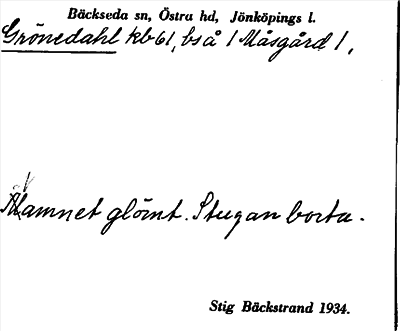 Bäckseda sn, Östra hd, Jönköpings l.
Grönedahl kb 61, bs å 1 Måsgård 1,
Namnet glömt. Stugan borta.
Stig Bäckstrand 1934.